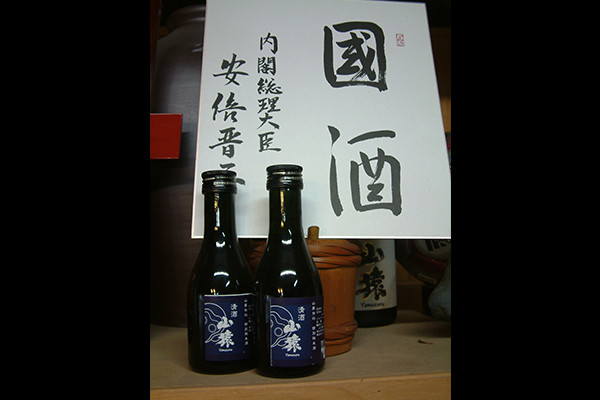 國酒
内閣総理大臣
安倍晋三
清酒
山猿
Yamazaru
清酒
山猿
Yamazaru
山猿
Yamazaru